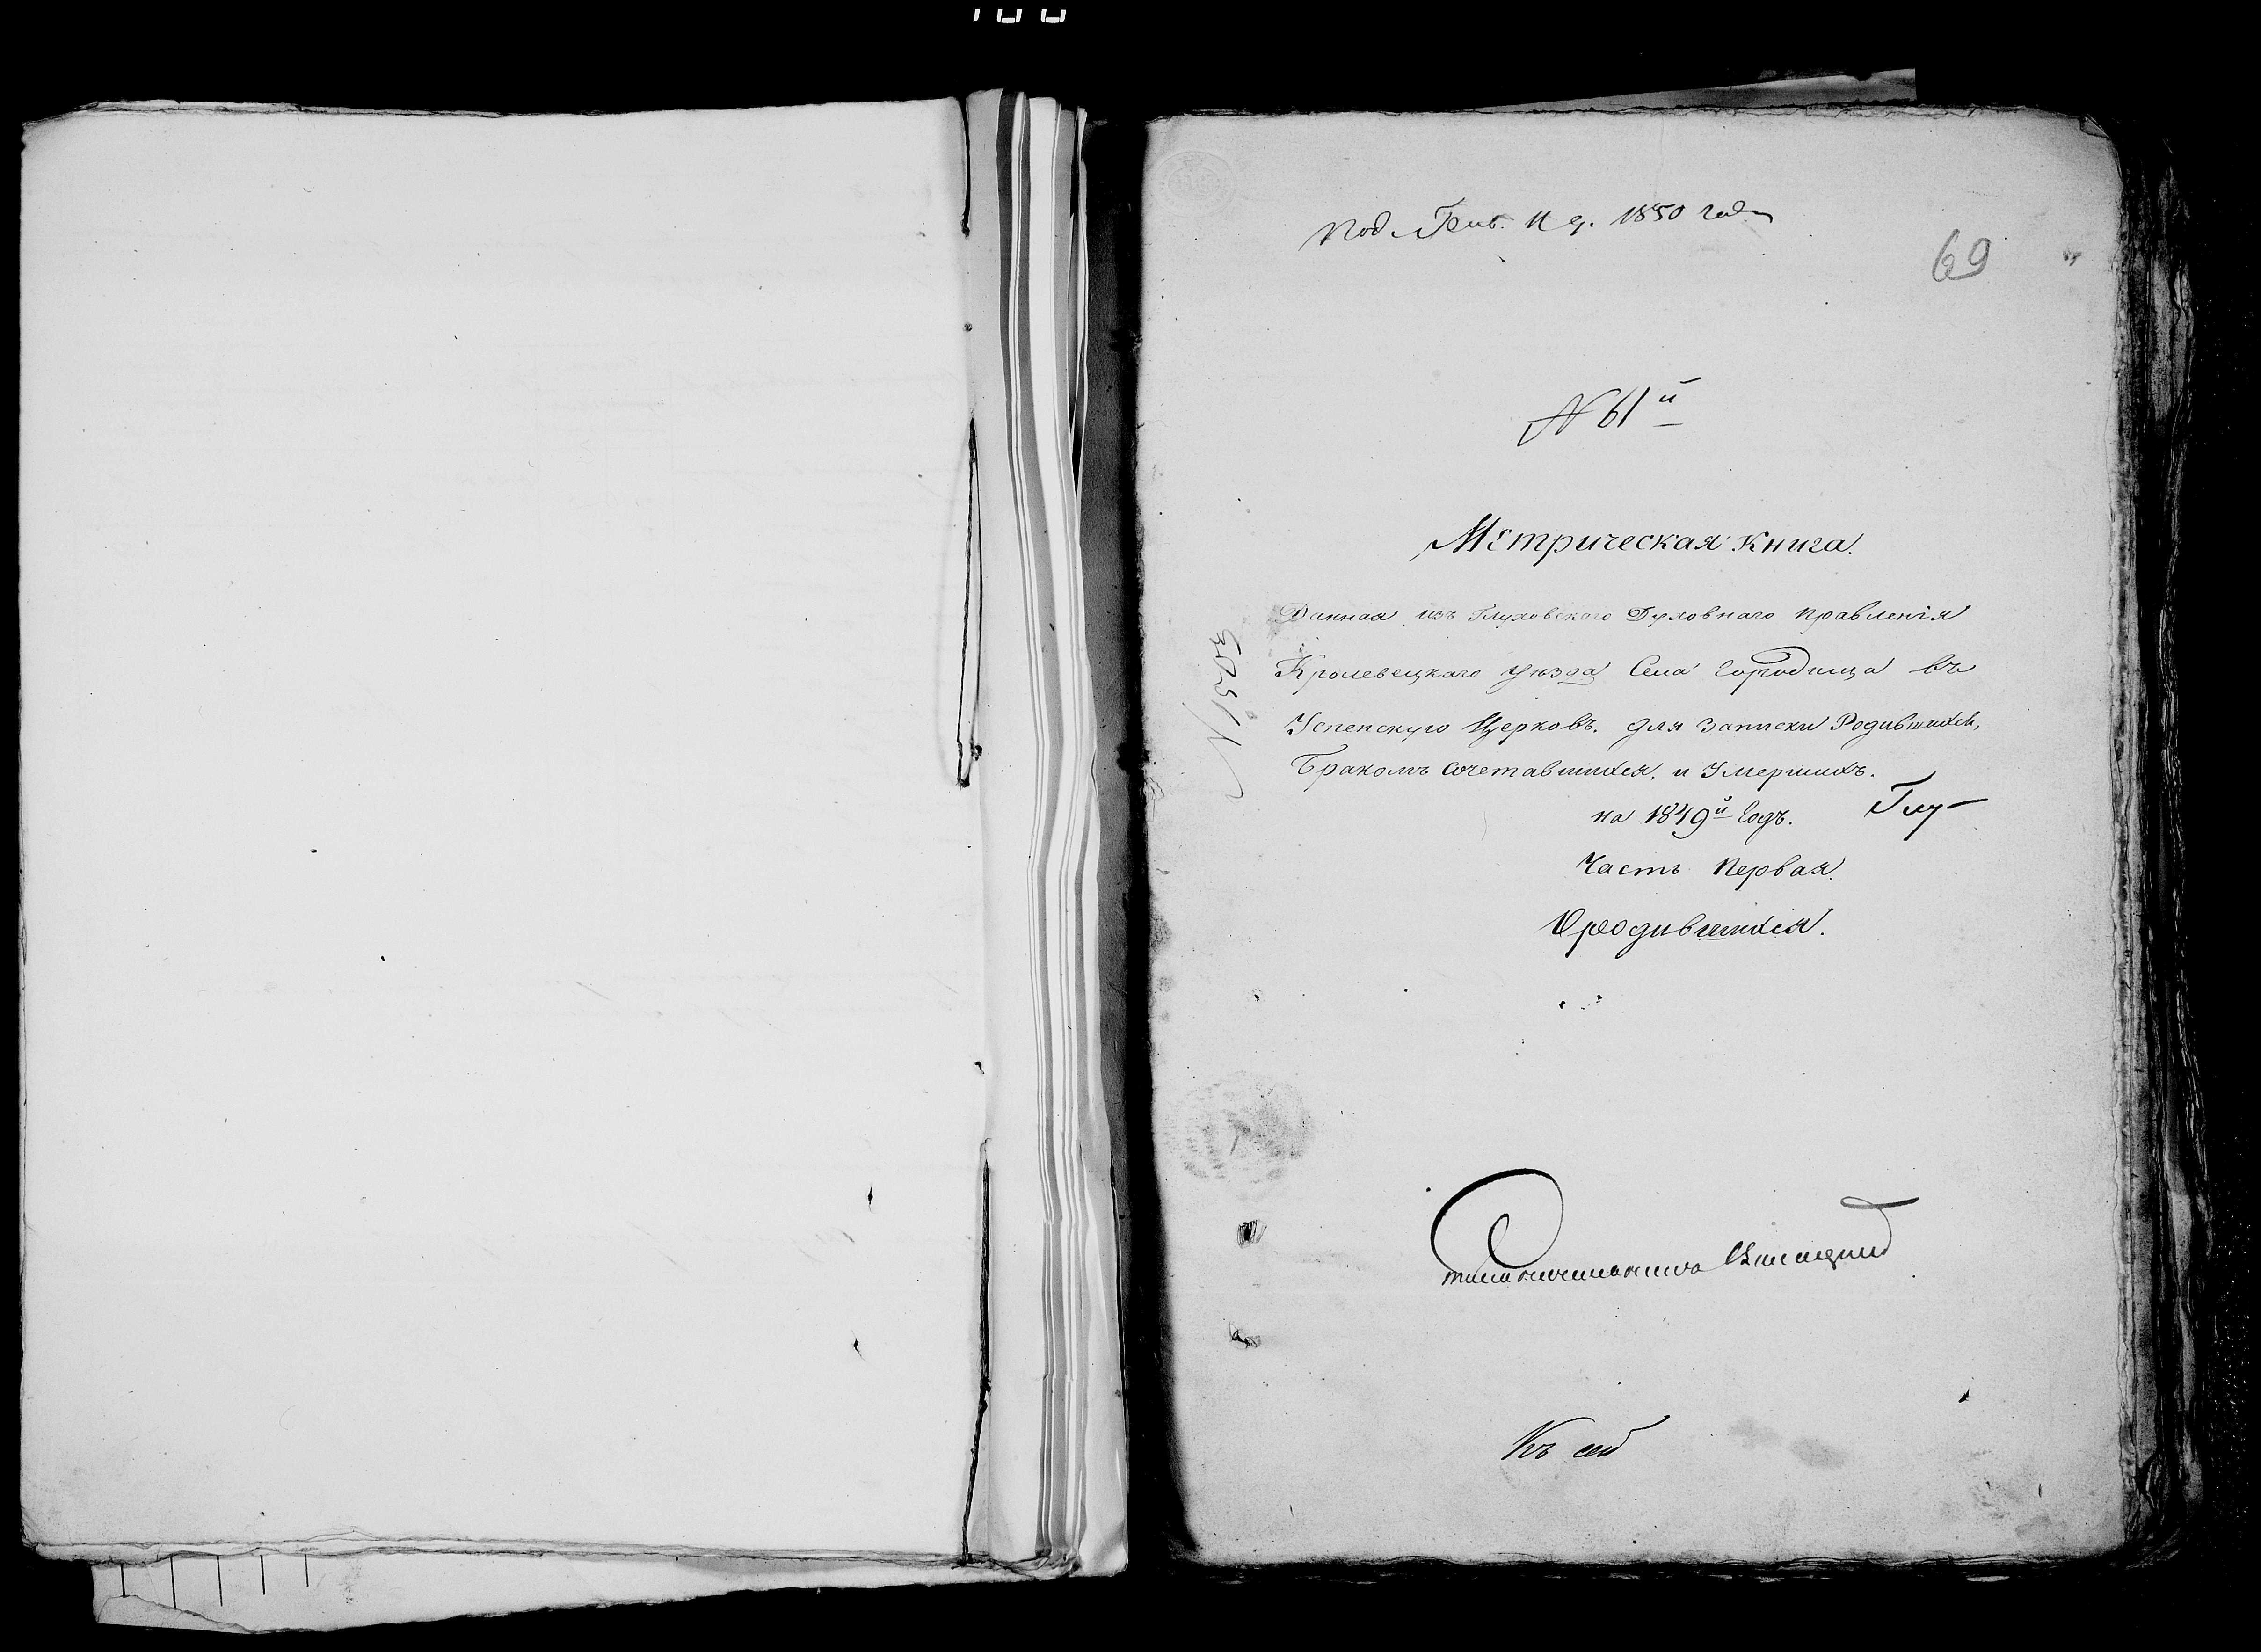 Под. Генв. 11 д. 1850 года
69
№ 61й
Метрическая книга.
Данная изъ Глуховского Духовнаго правленія
Кролевецкаго уѣзда Села Городища въ
Успенскую Церковь. для записки Родившихся,
Бракомъ сочетавшихся, и Умершихъ.
на 1849й Годъ. Глу-
Часть Первая.
О родившихся.
Къ сей